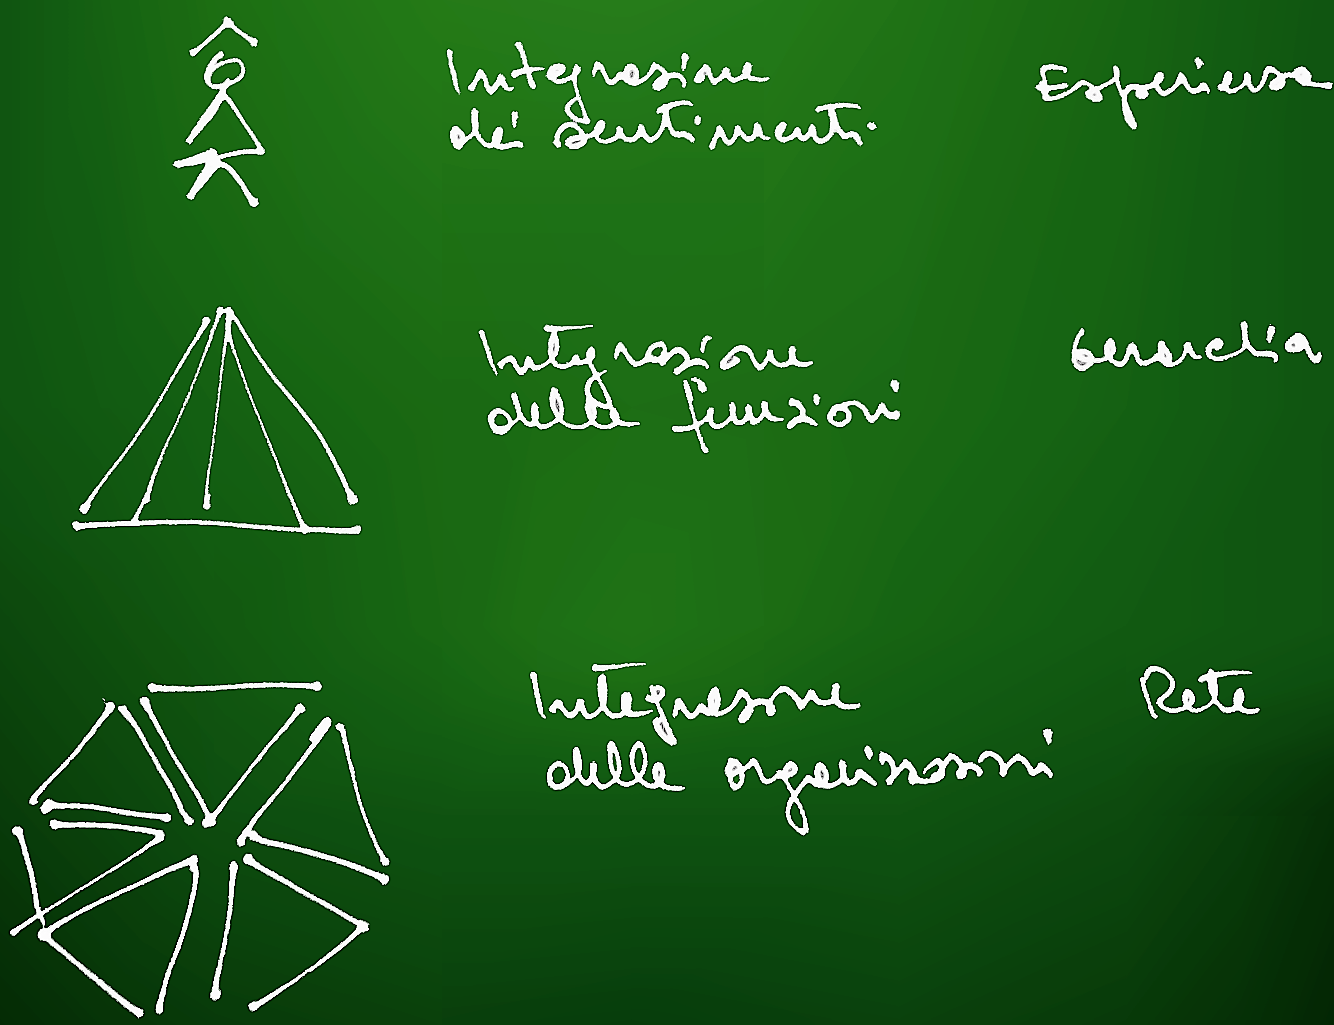 Integrazione
dei sentimenti
Esperienza
Integrazione
delle funzioni
Gerarchia
Integrazione
delle organizzazioni
Rete